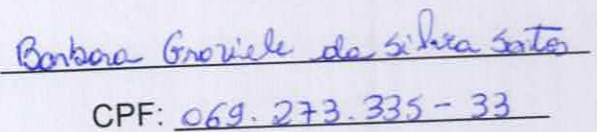 Barbara Graziele da Silva Santos
CPF: 069.273.335-33